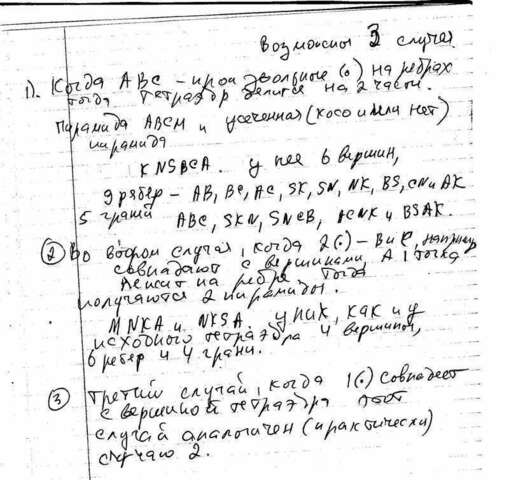 Возможны 3 случая
1). Когда ABC – произвольные (·) на ребрах
тогда тетраэдр делится на 2 части.
Пирамида ABCM и усеченная (косо или нет)
пирамида
KNSBCA. у нее 6 вершин,
9 рябер – AB, BC, AC, SK, SN, NK, BS, CN и AK
5 граней ABC, SKN, SNCB, ACNK и BSAK.
② Во втором случая, когда 2(·) – В и С, например
совпадают с вершинами, А 1 точка
лежит на ребре тогда
получаются 2 пирамиды.
MNKA и NKSA. у них, как и у
исходного тетраэдра 4 вершины,
6 ребер и 4 грани.
③ Третий случай, когда 1(·) совпадает
с вершиной тетраэдра этот
случай аналогичен (практически)
случаю 2.